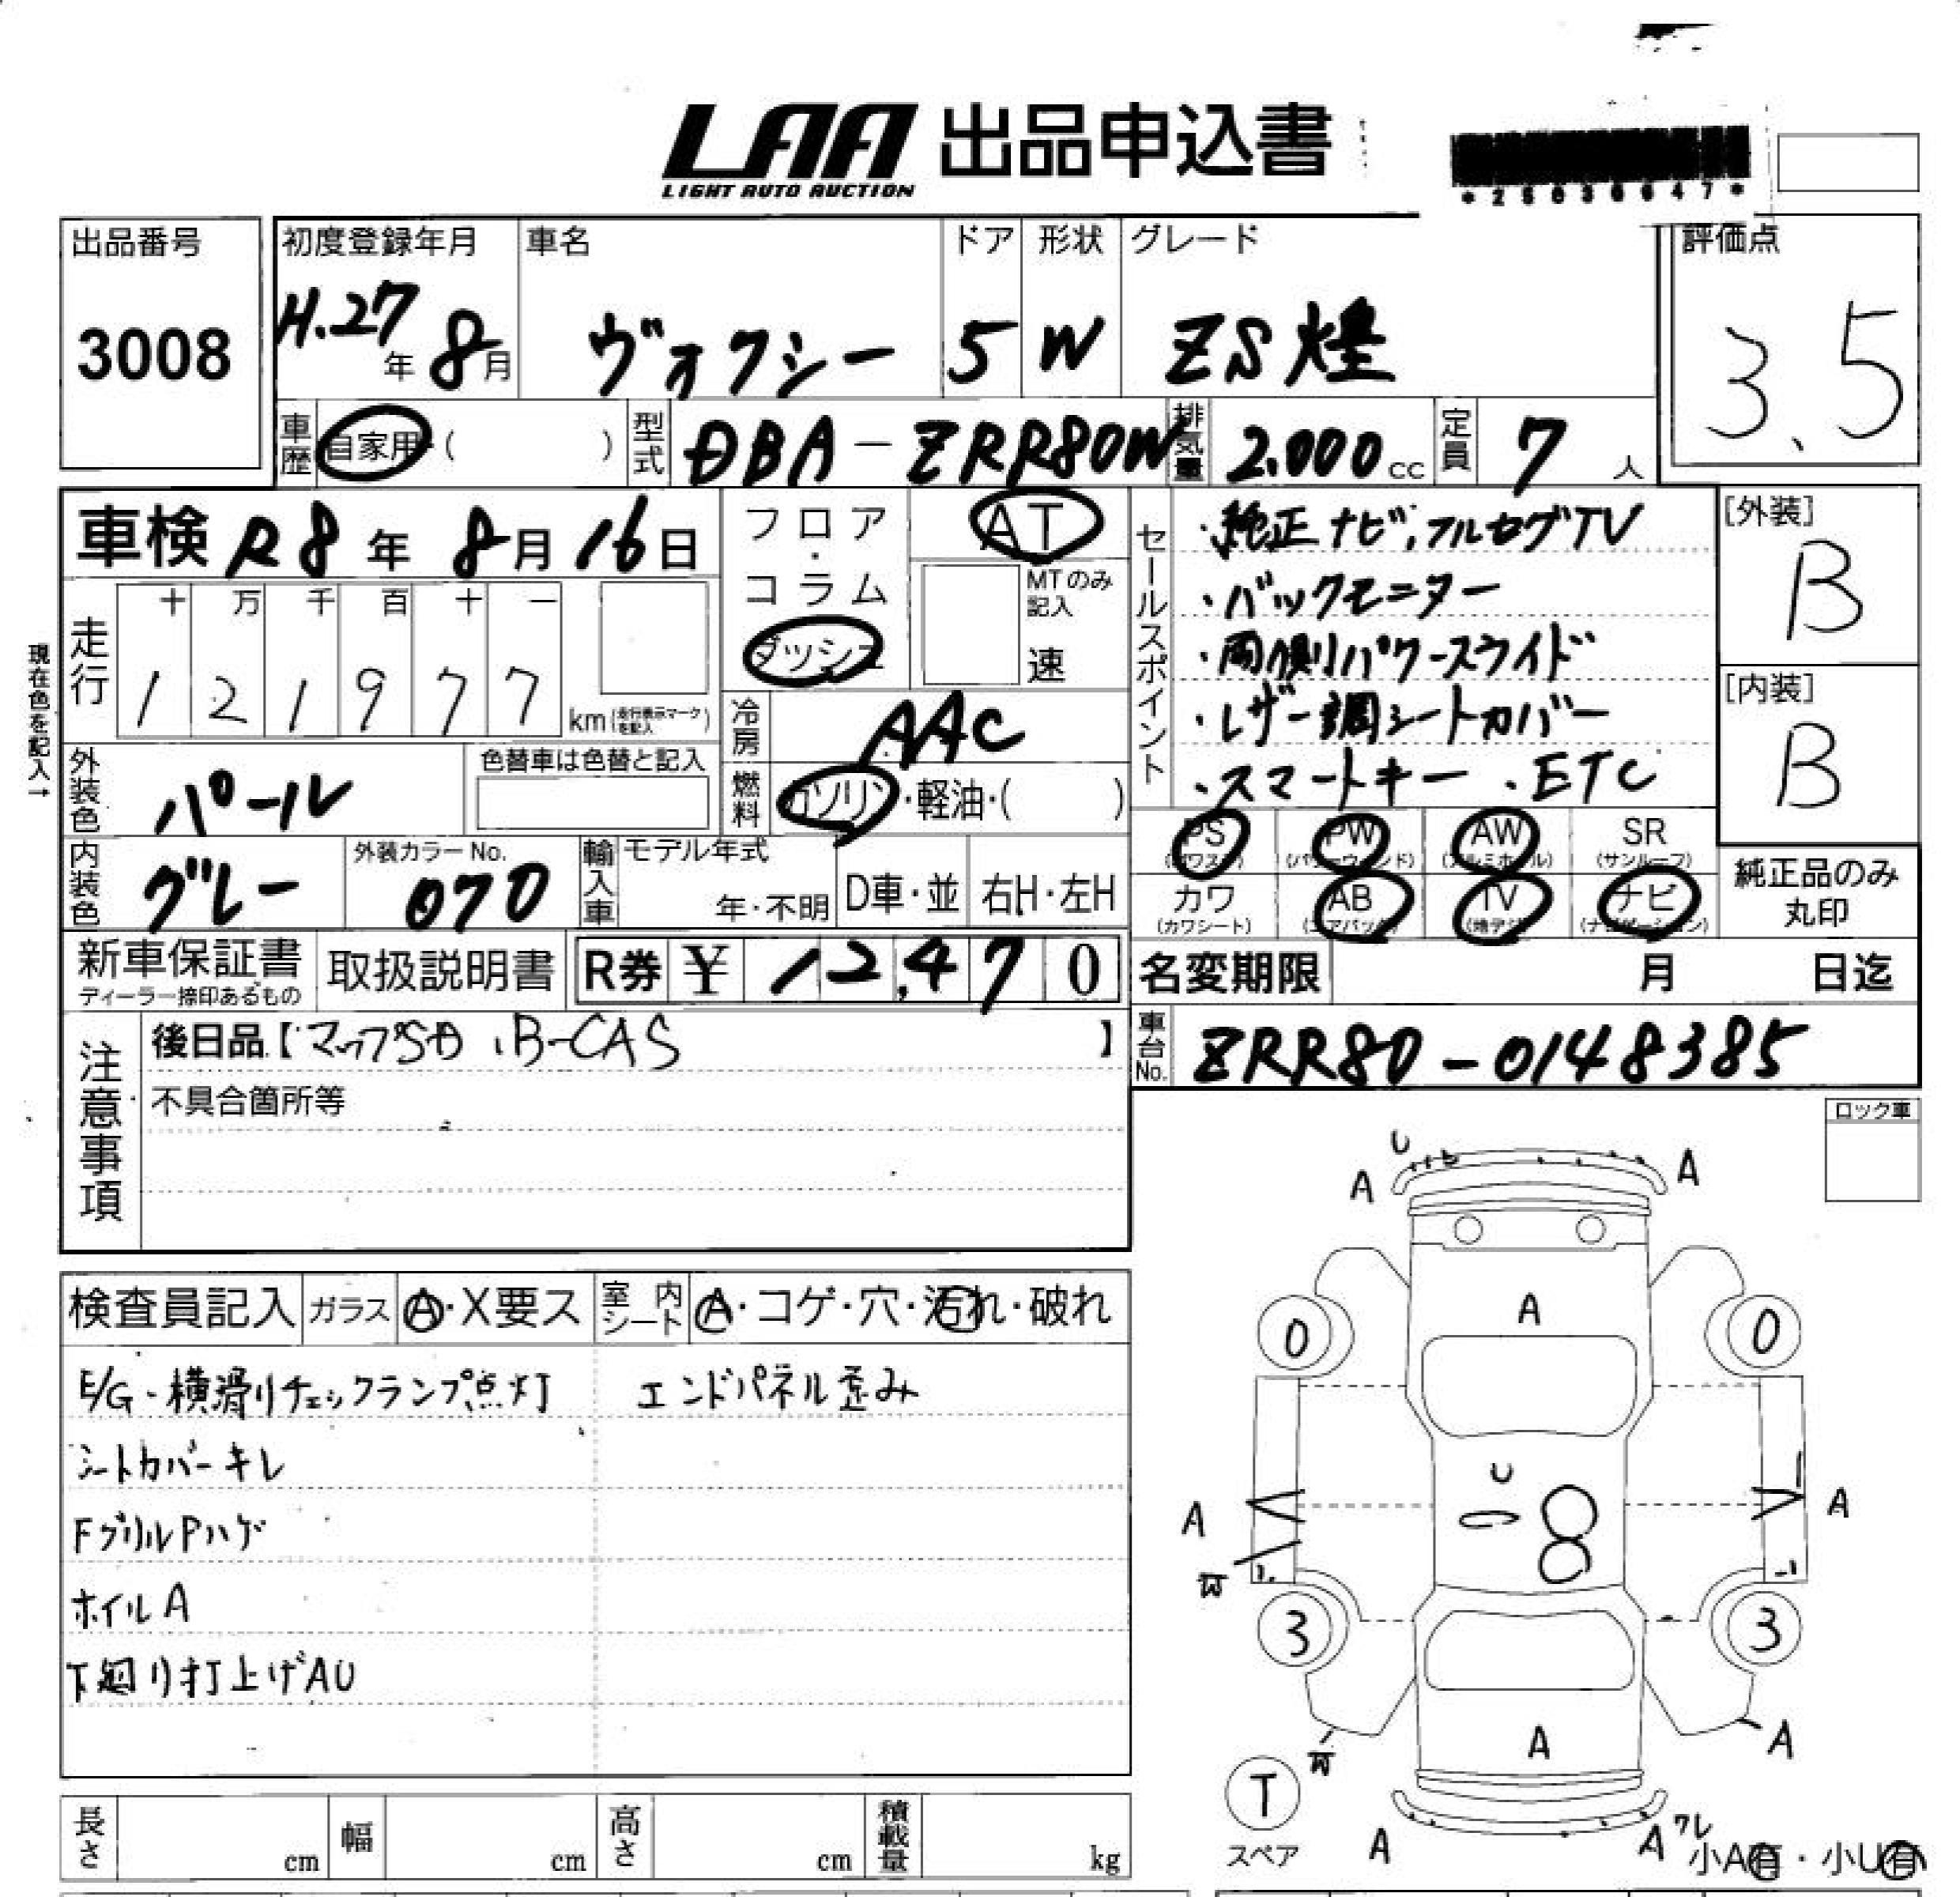 LAA 出品申込書
LIGHT AUTO AUCTION
*25030047*
出品番号 初度登録年月 車名 ドア 形状 グレード 評価点
3008 H.27年 8月 ヴォクシー 5 W ZS煌 3.5
車歴 自家用・( ) 型式 DBA-ZRR80W 排気量 2.000cc 定員 7人
車検 R8年 8月 16日 フロア・コラム ダッシュ AT
MTのみ記入 速
セールスポイント
・純正ナビ,フルセグTV
・バックモニター
・両側パワースライド
・レザー調シートカバー
・スマートキー ・ETC
[外装] B
[内装] B
走行 十 万 千 百 十 一
1 2 1 9 7 7 km(走行表示マークを記入)
現在色を記入→
冷房 AAC
外装色 パール 色替車は色替と記入 燃料 ガソリン・軽油・( )
PS (パワステ) PW (パワーウィンド) AW (アルミホイル) SR (サンルーフ)
カワ (カワシート) AB (エアバック) TV (地デジ) ナビ (ナビゲーション)
純正品のみ丸印
内装色 グレー 外装カラーNo. 070 輸入車 モデル年式 年・不明 D車・並 右H・左H
新車保証書 ディーラー捺印あるもの 取扱説明書 R券 ¥ 12,470 名変期限 月 日迄
注意事項 後日品【マップSD、B-CAS 】
車台No. ZRR80-0148385
不具合箇所等
ロック車
検査員記入 ガラス A・X要ス 室内シート A・コゲ・穴・汚れ・破れ
E/G・横滑りチェックランプ点灯 エンドパネル歪み
シートカバーキレ
FグリルPハゲ
ホイルA
下廻り打上げAU
U
A A
A
0 0
U
A A
W
3 3
A
W A
T
スペア
A A ワレ
小A有・小U有
長さ cm 幅 cm 高さ cm 積載量 kg